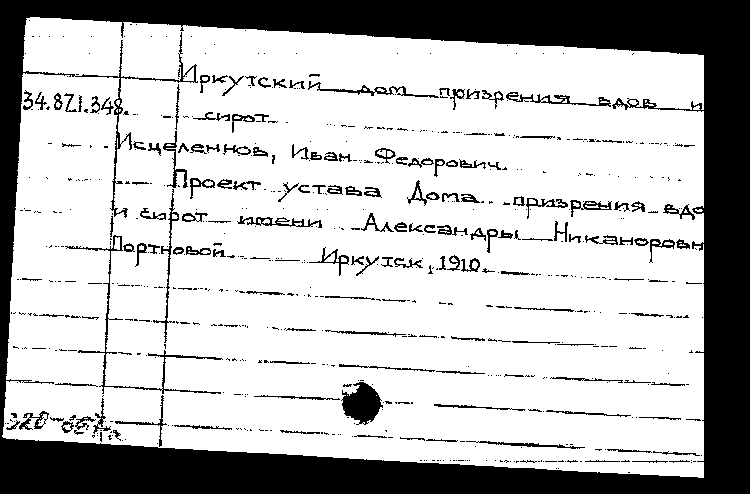 Иркутский дом призрения вдов и
34.8Z1.348. сирот.
Исцеленнов, Иван Федорович.
Проект устава Дома призрения вдо
и сирот имени Александры Никаноровн
Портновой. Иркутск, 1910.